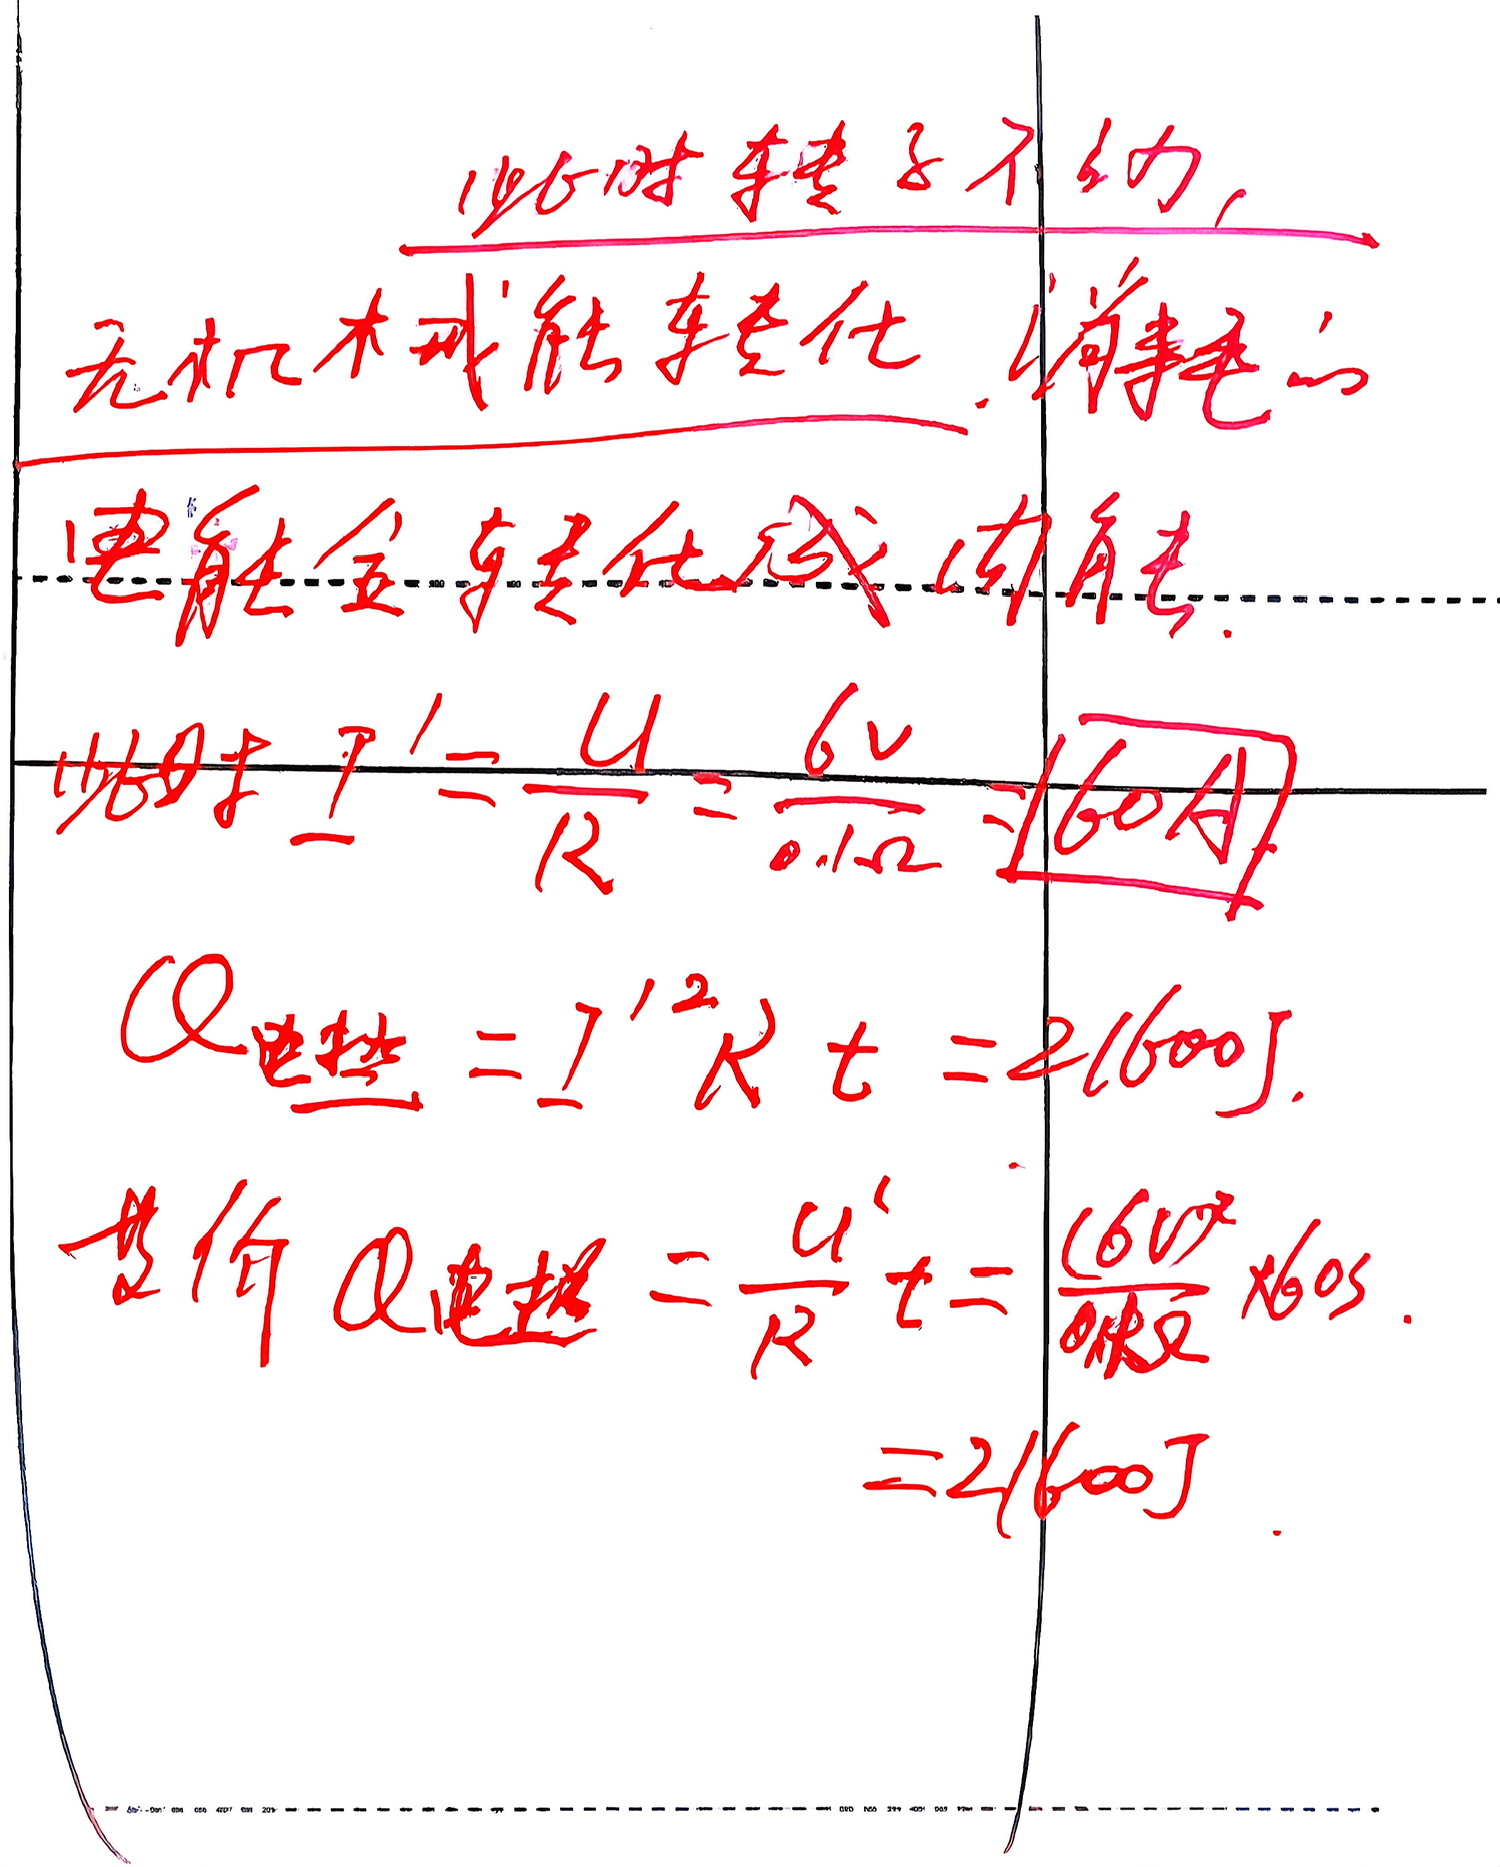 此时转子不动,
无机械能转化.消耗的
电能全转化成内能.
此时 I' = U/R = 6V/0.1Ω = 60A
Q电热 = I'²Rt = 21600J.
其价 Q电热 = U'/R t = (6V)²/0.1Ω ×60s.
=21600J